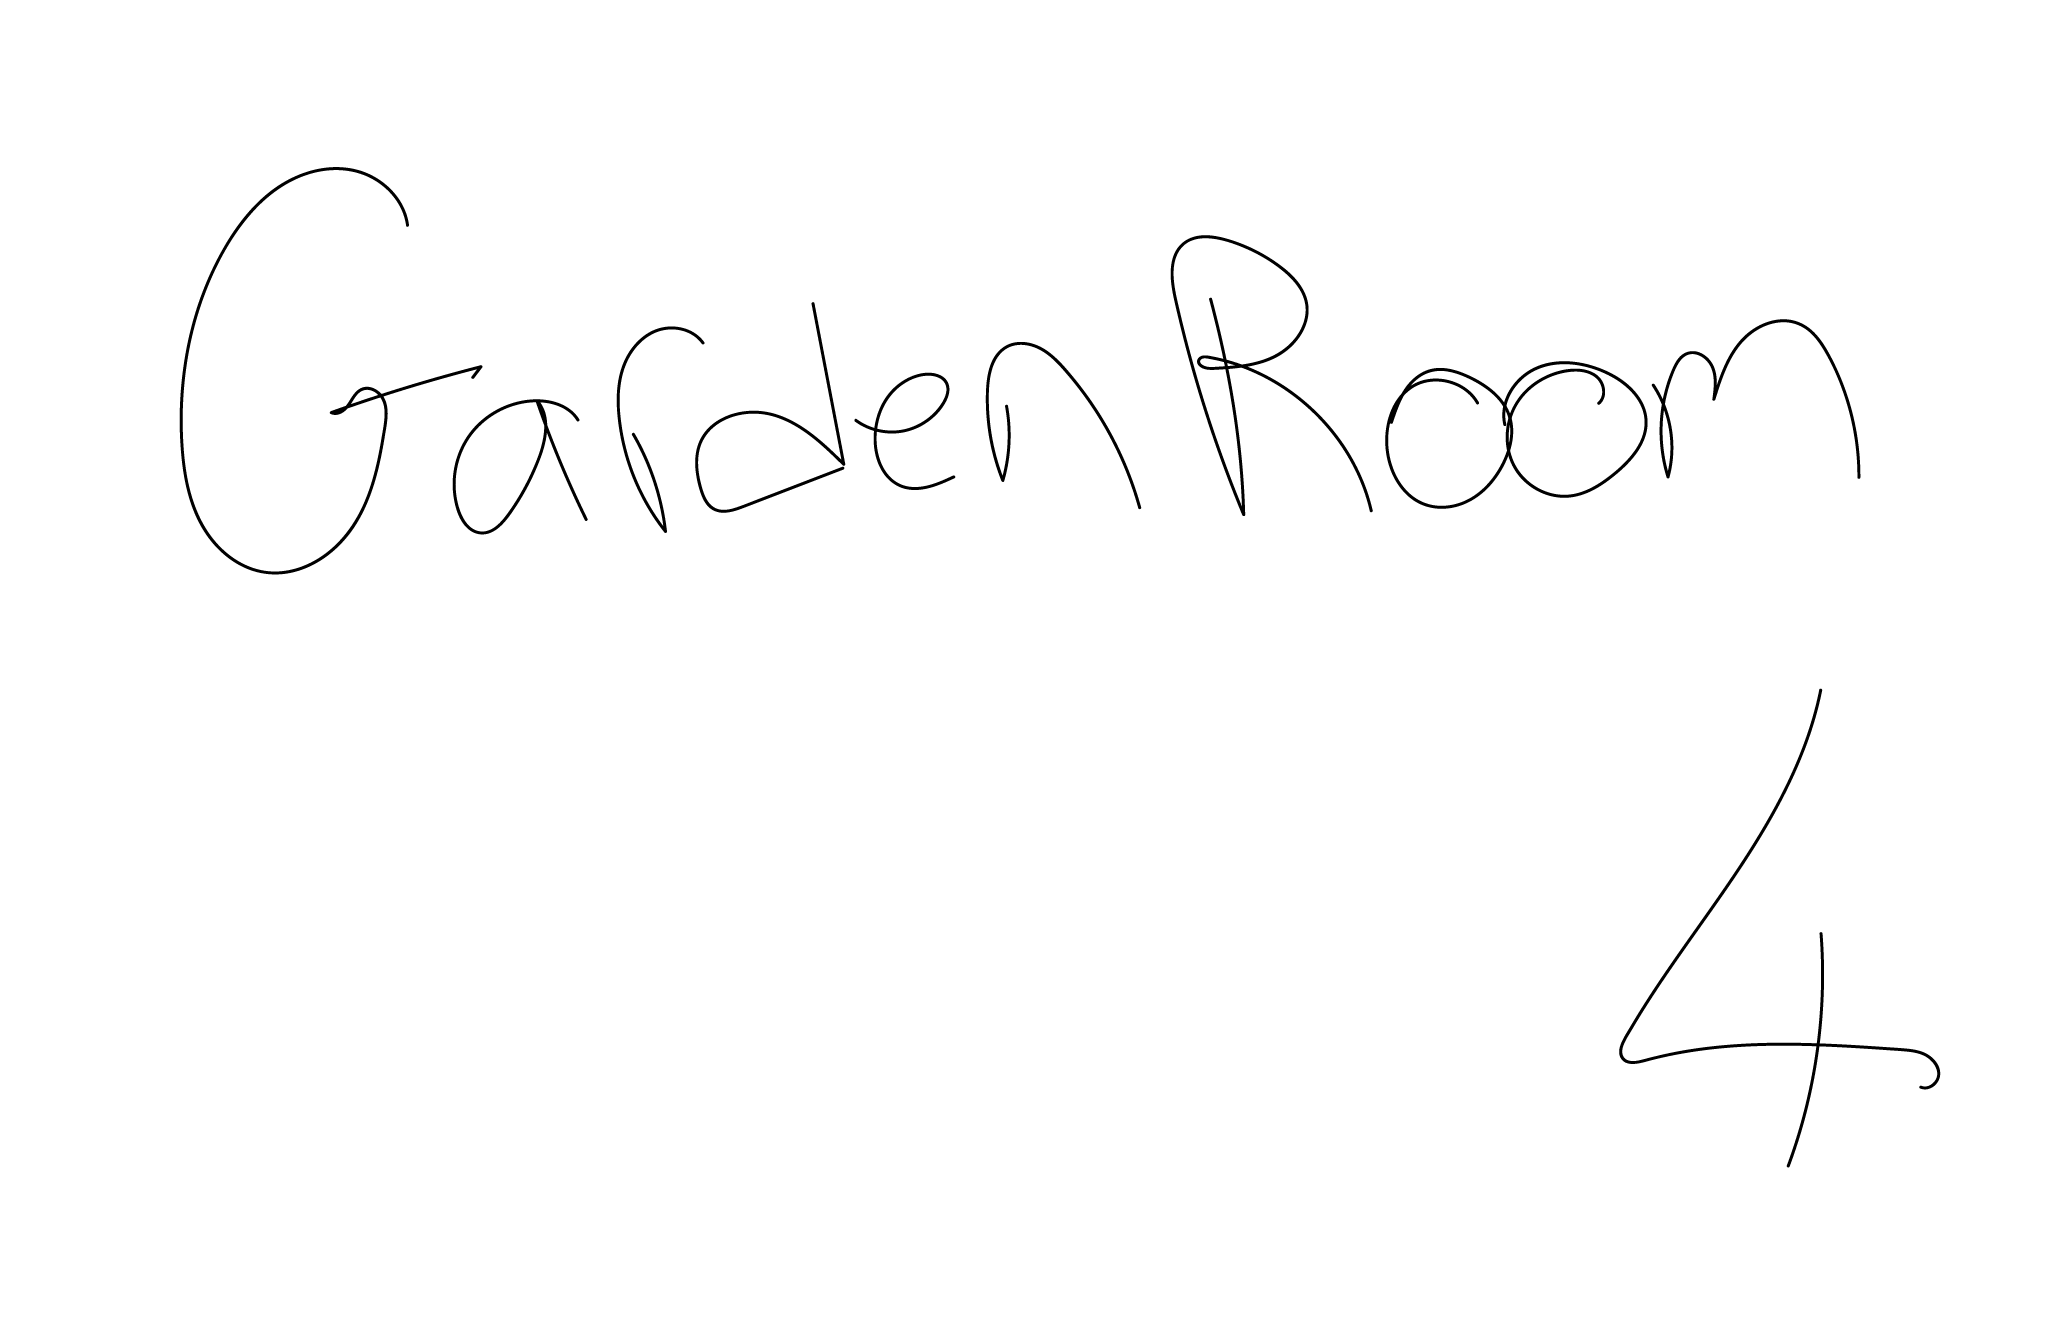 Garden Room
4